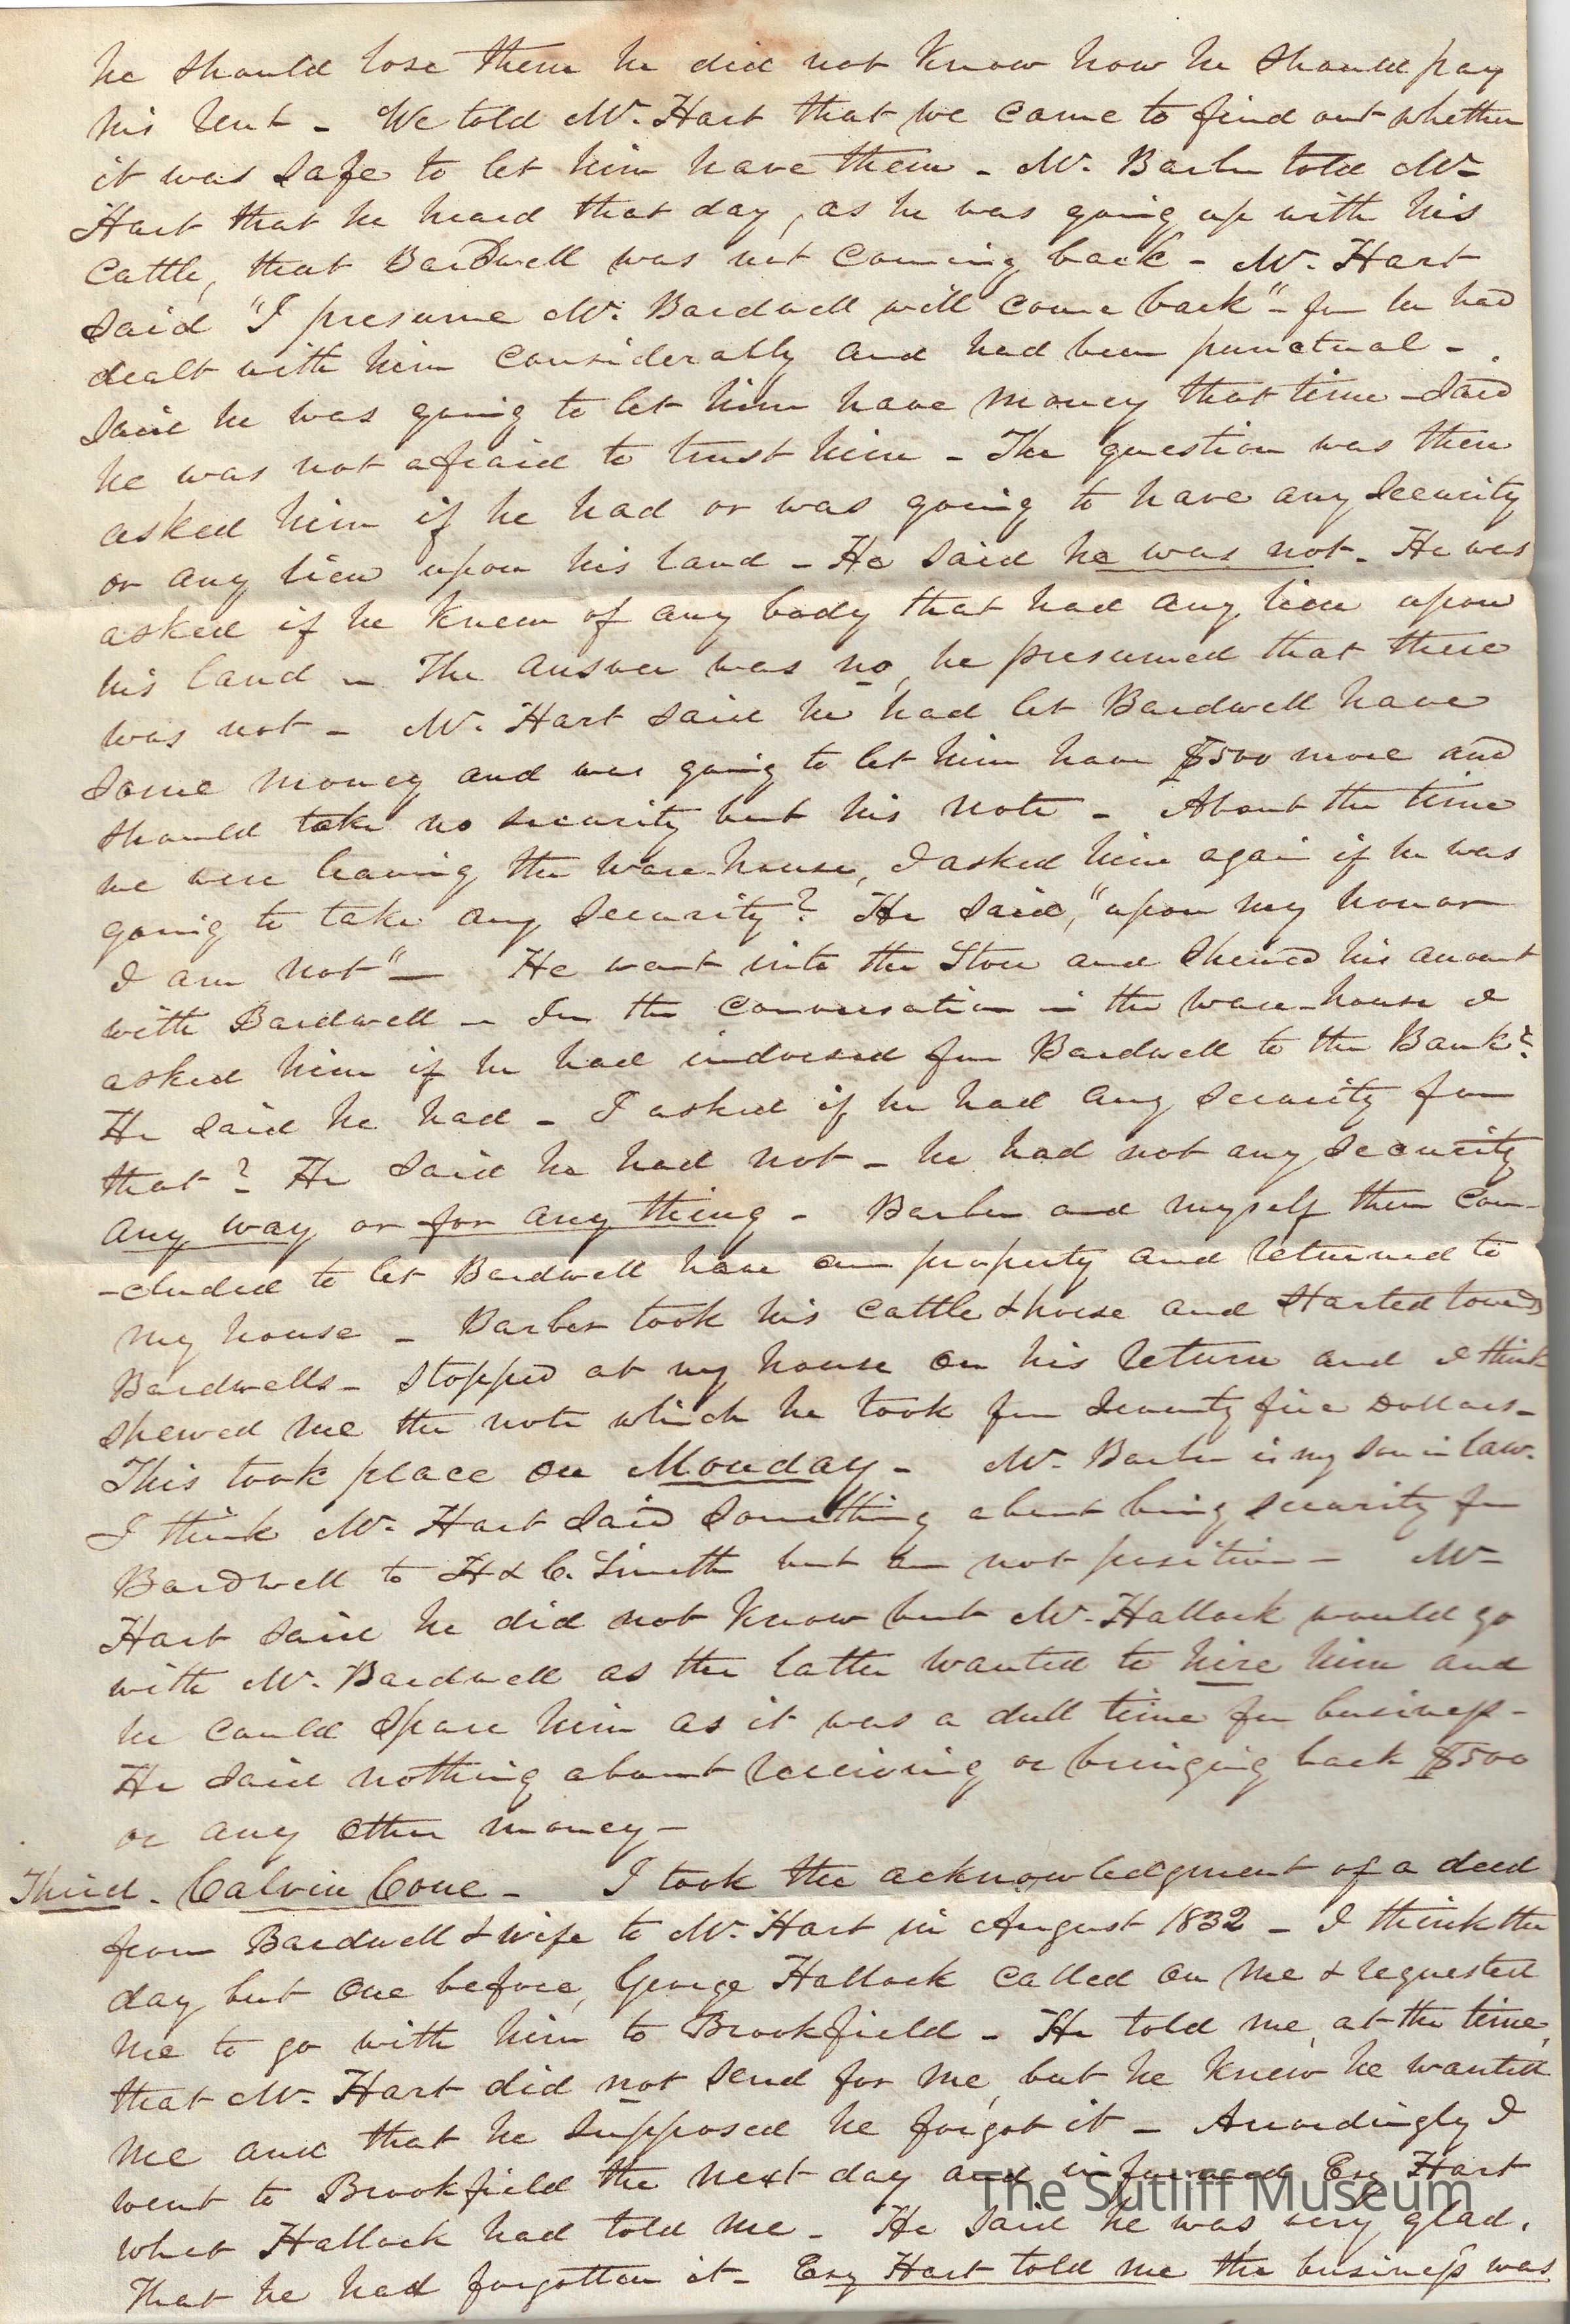 he should lose them he did not know how he should pay
his rent - We told Mr. Hart that we came to find out whether
it was safe to let him have them - Mr. Barber told Mr
Hart that he heard that day, as he was going up with his
Cattle, that Bardwell was not coming back - Mr. Hart
said "I presume Mr. Bardwell will come back" - for he had
dealt with him considerably and had been punctual -
said he was going to let him have money that time - said
he was not afraid to trust him - The question was then
asked him if he had or was going to have any security
or any lien upon his land - He said he was not. He was
asked if he knew of any body that had any lien upon
his land - The answer was no, he presumed that there
was not - Mr. Hart said he had let Bardwell have
some money and was going to let him have $500 more and
should take no security but his note - About the time
we were leaving the ware-house, I asked him again if he was
going to take any security? He said, "upon my honor
I am not" - He went into the Store and shewed his account
with Bardwell - In the conversation in the ware-house I
asked him if he had indorsed for Bardwell to the Bank?
He said he had - I asked if he had any security for
that? He said he had not - he had not any security
any way or for any thing - Barber and myself then con-
-cluded to let Bardwell have our property and returned to
my house - Barber took his cattle & horse and started towards
Bardwells - stopped at my house on his return and I think
shewed me the note which he took for seventy five Dollars -
This took place on Monday - Mr. Barber is my son in law.
I think Mr. Hart said something about being security for
Bardwell to H & C. Smith but am not positive - Mr
Hart said he did not know but Mr. Hallock would go
with Mr. Bardwell as the latter wanted to hire him and
he could spare him as it was a dull time for business -
He said nothing about receiving or bringing back $500
or any other money -
Third - Calvin Cone - I took the acknowledgment of a deed
from Bardwell & wife to Mr. Hart in August 1832 - I think the
day but one before, George Hallock called on me & requested
me to go with him to Brookfield - He told me, at the time,
that Mr. Hart did not send for me, but he knew he wanted
me and that he supposed he forgot it - Accordingly I
went to Brookfield the next day and informed Esq Hart
what Hallock had told me - He said he was very glad,
that he had forgotten it - Esq Hart told me the business was
The Sutliff Museum